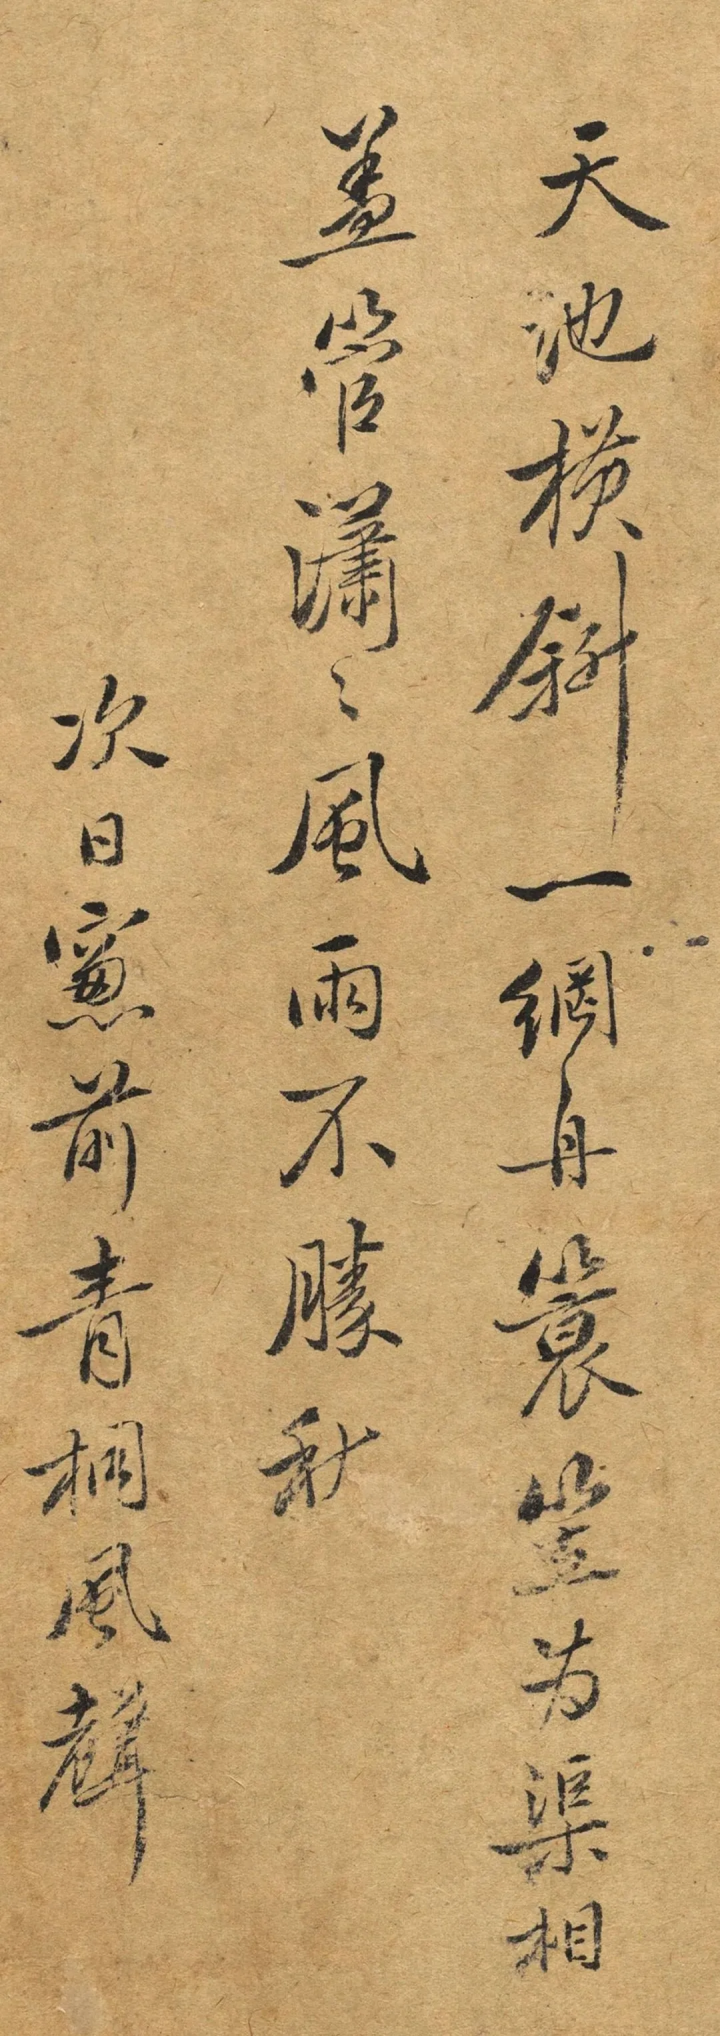 天池橫斜一網舟簑笠為渠相
蓋管瀟〻風雨不勝秋
次日窻前青桐風聲